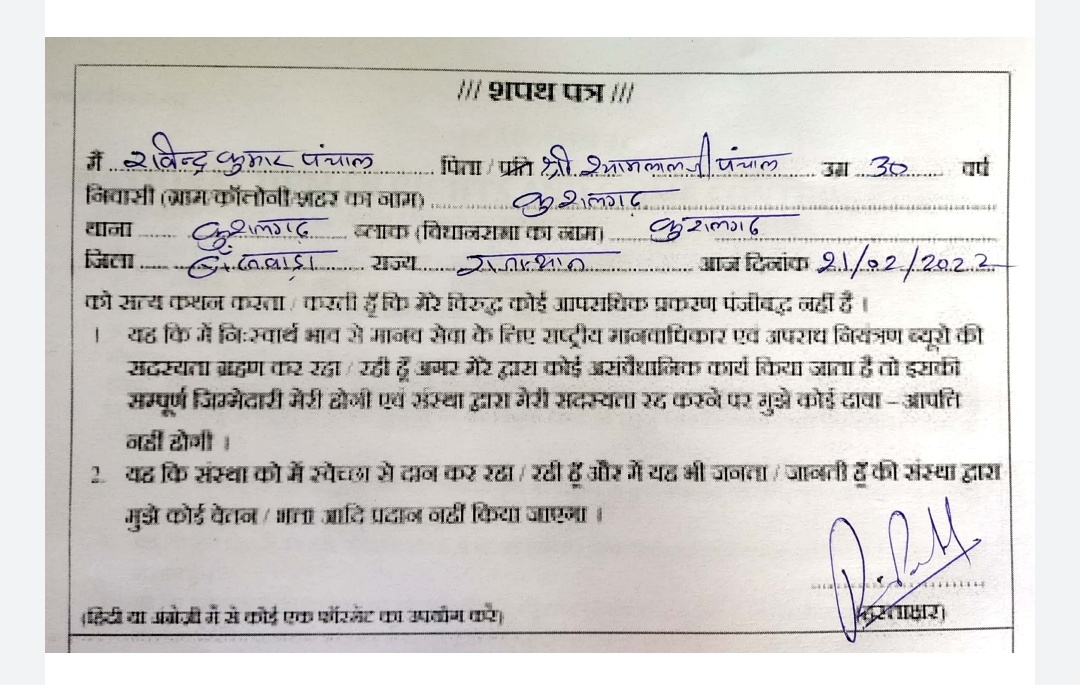 /// शपथ पत्र ///
मैं ..रविन्द्र कुमार पंचाल.......... पिता / प्रति श्री श्यामलालजी पंचाल ...... उम्र ..30...... वर्ष
निवासी (ग्राम/कॉलोनी/शहर का नाम) ............ कुशलगढ़ ............
थाना ...... कुशलगढ़ .... ब्लाक (विधानसभा का नाम) .... कुशलगढ़ ............
जिला..... बांसवाड़ा ........ राज्य..... राजस्थान ............ आज दिनांक 21/02/2022
को सत्य कथन करता / करती हूँ कि मेरे विरुद्ध कोई आपराधिक प्रकरण पंजीबद्ध नहीं है ।
1 यह कि में निःस्वार्थ भाव से मानव सेवा के लिए राष्ट्रीय मानवाधिकार एवं अपराध नियंत्रण ब्यूरो की
सदस्यता ग्रहण कर रहा / रही हूँ अगर मेरे द्वारा कोई असंवैधानिक कार्य किया जाता है तो इसकी
सम्पूर्ण जिम्मेदारी मेरी होगी एवं संस्था द्वारा मेरी सदस्यता रद्द करने पर मुझे कोई दावा – आपत्ति
नहीं होगी ।
2. यह कि संस्था को में स्वेच्छा से दान कर रहा / रही हूँ और में यह भी जनता / जानती हूँ की संस्था द्वारा
मुझे कोई वेतन / भत्ता आदि प्रदान नहीं किया जाएगा ।
(हिंदी या अंग्रेजी में से कोई एक फॉरमेट का उपयोग करें) हस्ताक्षर)